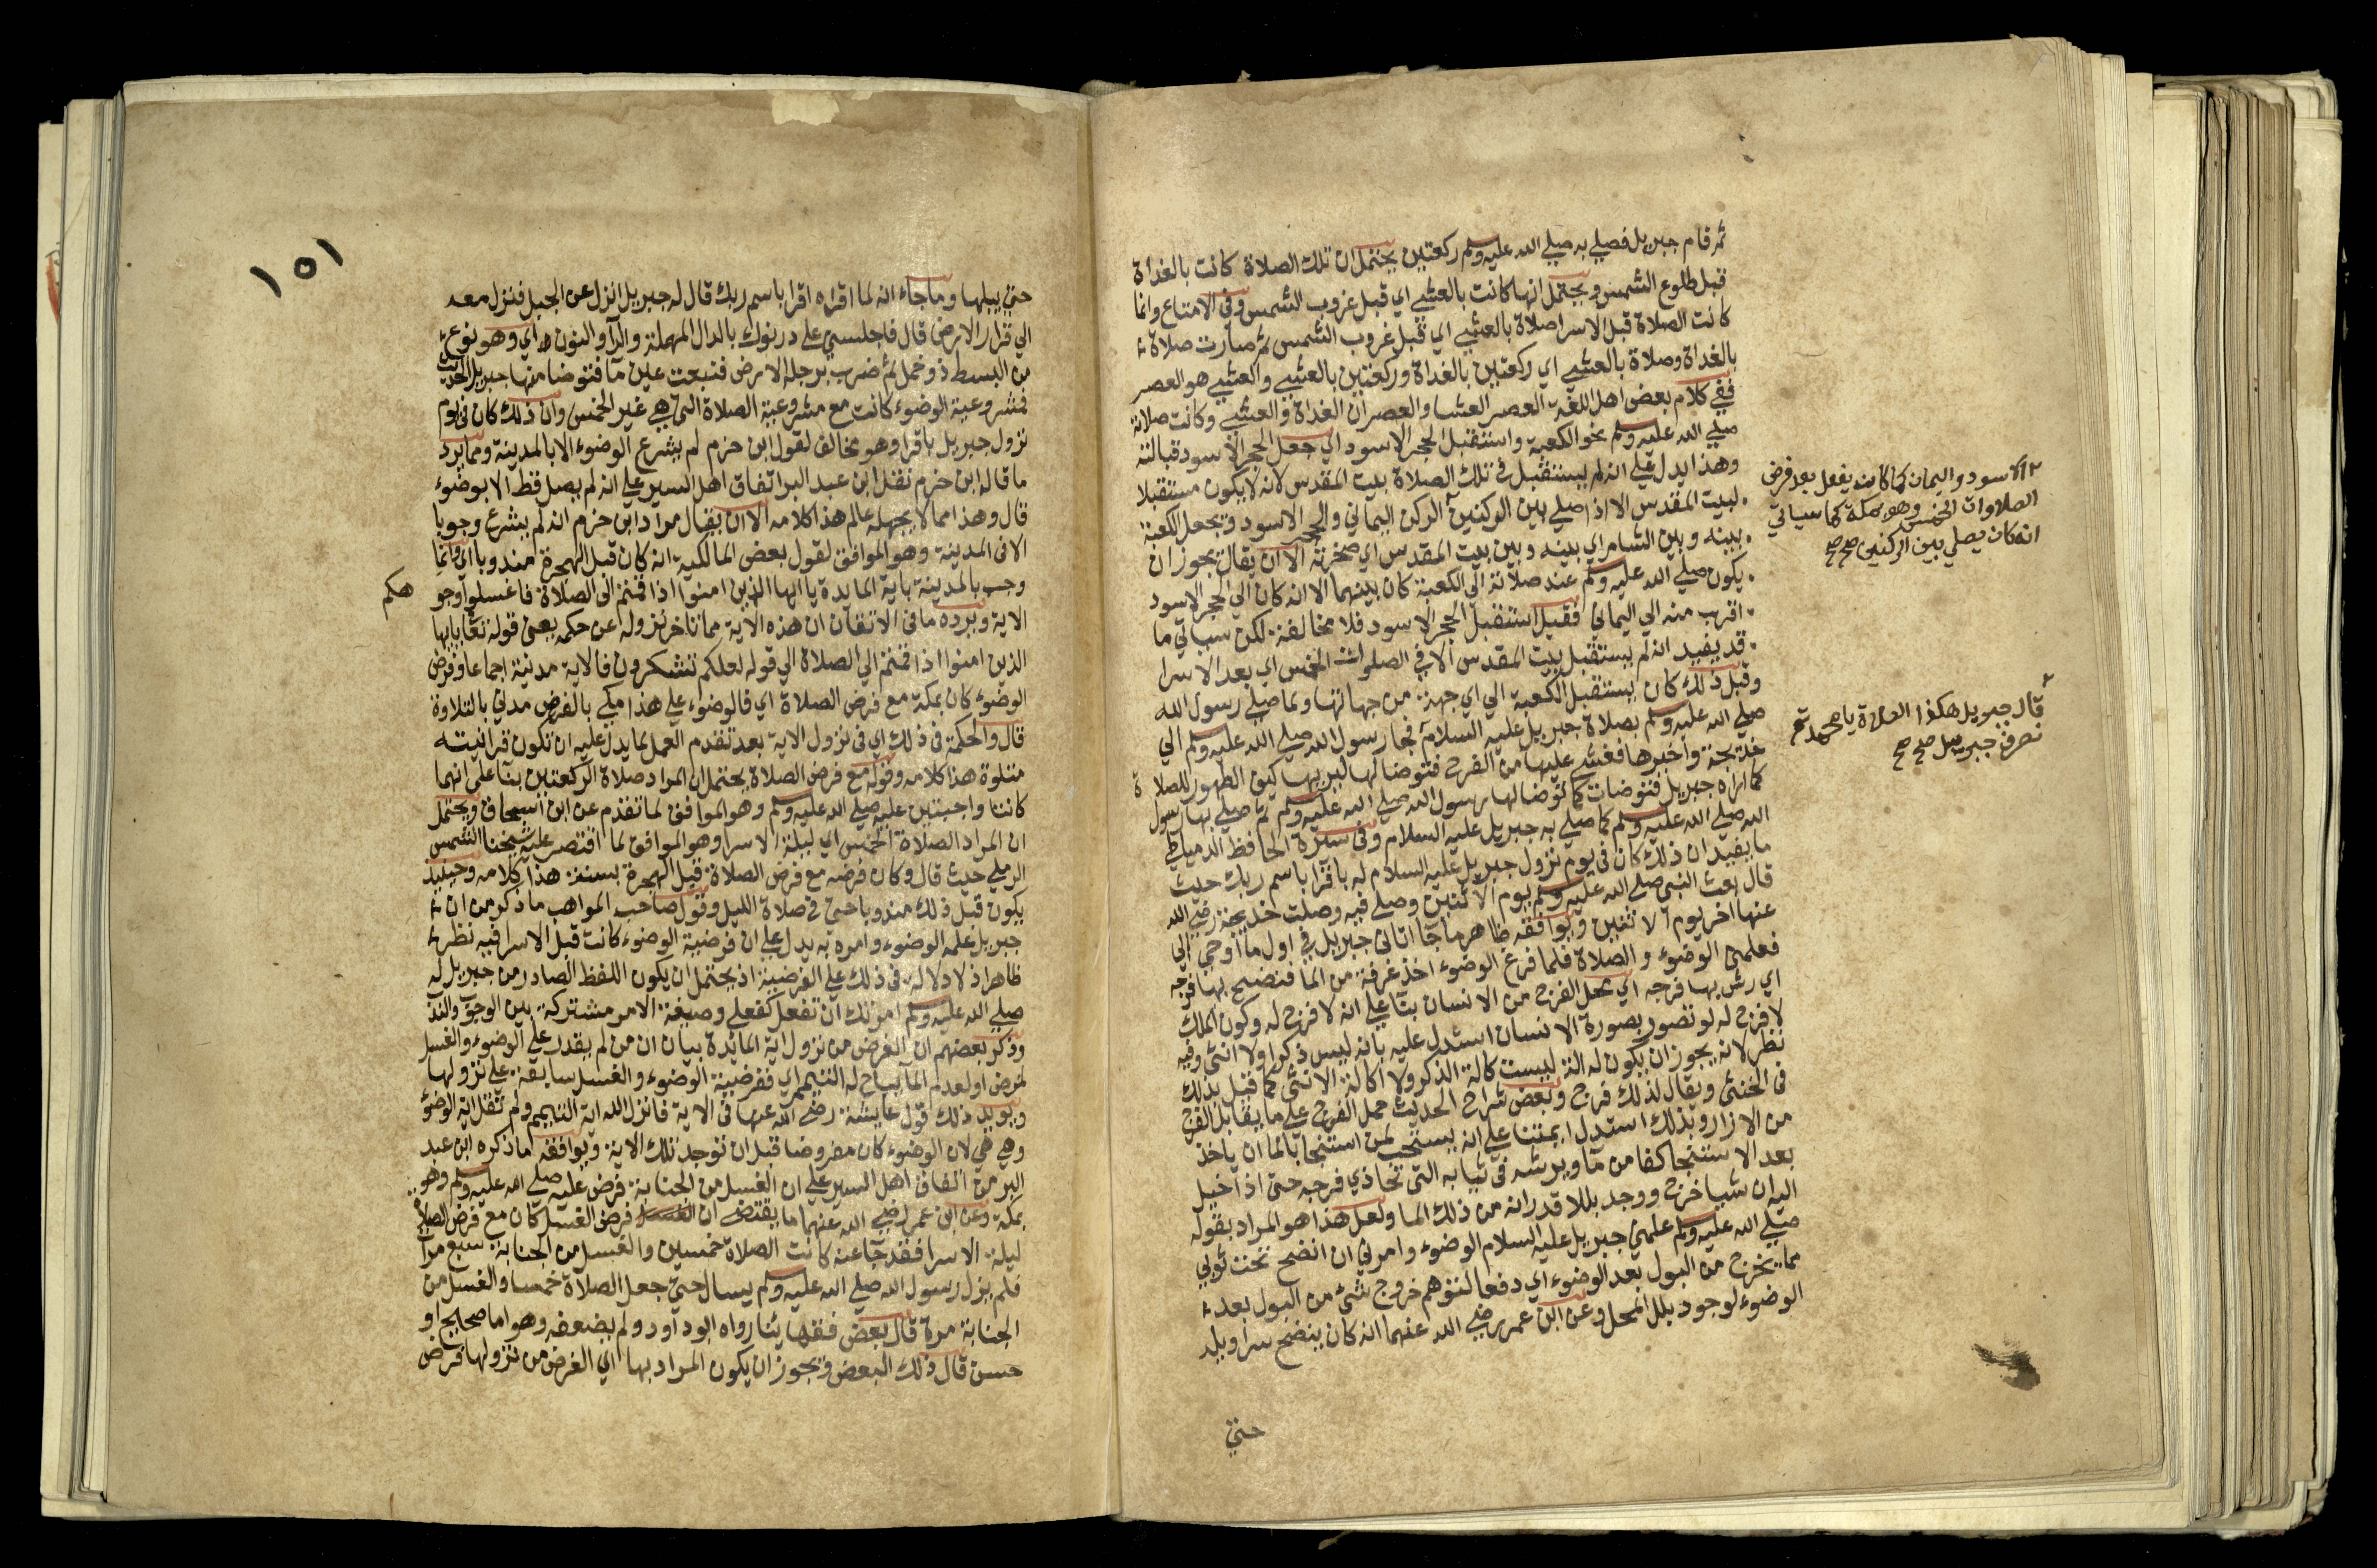 ثم قام جبريل فصلي به صلي الله عليه وسلم ركعتين يحتمل ان تلك الصلاة كانت بالغداة
قبل طلوع الشمس ويحتمل انها كانت بالعشي اي قبل غروب الشمس وفي الامتاع وانما
كانت الصلاة قبل الاسرا صلاة بالعشي اي قبل غروب الشمس ثم صارت صلاة
بالغداة وصلاة بالعشي اي ركعتين بالغداة وركعتين بالعشي والعشي هو العصر
ففي كلام بعض اهل اللغة العصر العشا والعصران الغداة والعشي وكانت صلاته
صلي الله عليه وسلم نحو الكعبة واستقبل الحجر الاسود اي جعل الحجر الاسود قبالته
وهذا يدل علي انه لم يستقبل في تلك الصلاة بيت المقدس لانه لا يكون مستقبلا
لبيت المقدس الا اذا صلي بين الركنين الركن اليماني والحجر الاسود ويجعل الكعبة
بينه وبين الشام اي بينه وبين بيت المقدس اي صخرته الا ان يقال يجوز ان
يكون صلي الله عليه وسلم عند صلاته الي الكعبة كان بينهما الا انه كان الي الحجر الاسود
اقرب منه الي اليماني فقيل استقبل الحجر الاسود فلا مخالفة لكن سياتي ما
قد يفيد انه لم يستقبل بيت المقدس الا في الصلوات الخمس اي بعد الاسرا
وقبل ذلك كان يستقبل الكعبة الي اي جهة من جهاتها ولما صلي رسول الله
صلي الله عليه وسلم بصلاة جبريل عليه السلام فجا رسول الله صلي الله عليه وسلم الي
خديجة واخبرها فغشي عليها من الفرح فتوضا لها ليريها كيف الطهور للصلاة
كما اراه جبريل فتوضات كما توضا لها رسول الله صلي الله عليه وسلم ثم صلي بها رسول
الله صلي الله عليه وسلم كما صلي به جبريل عليه السلام وفي سيرة الحافظ الدمياطي
ما يفيد ان ذلك كان في يوم نزول جبريل عليه السلام له باقرا باسم ربك حيث
قال بعث النبي صلي الله عليه وسلم يوم الاثنين وصلي فيه وصلت خديجة رضي الله
عنها اخر يوم الاثنين ويوافقه ظاهر ما جا اتاني جبريل في اول ما اوحي الي
فعلمني الوضوء والصلاة فلما فرغ الوضوء اخذ غرفة من الما فنضح بها فرجه
اي رش بها فرجه اي محل الفرج من الانسان بنا علي انه لا فرج له وكون الملك
لا فرج له لو تصور بصورة الانسان استدل عليه بانه ليس ذكرا ولا انثي وفيه
نظر لانه يجوز ان يكون له الة ليست كالة الذكر ولا كالة الانثي كما قيل بذلك
في الخنثي ويقال لذلك فرج وبعض شراح الحديث حمل الفرج علي ما يقابل الفرج
من الازار وبذلك استدل ايمتنا علي انه يستحب لمن استنجا بالما ان ياخذ
بعد الاستنجا كفا من ما ويرشه في ثيابه التي تحاذي فرجه حتي اذا خيل
اليه ان شيا خرج ووجد بللا قدر انه من ذلك الما ولعل هذا هو المراد بقوله
صلي الله عليه وسلم علمني جبريل عليه السلام الوضوء وامرني ان انضح تحت ثوبي
مما يخرج من البول بعد الوضوء اي دفعا لتوهم خروج شي من البول بعد
الوضوء لوجود بلل المحل وعن ابن عمر رضي الله عنهما انه كان ينضح سراويله
حتي
الاسود واليمان كما كان يفعل بعد فرض
الصلاوات الخمس وهو بمكة كما سياتي
انه كان يصلي بين الركنين صح صح
قال جبريل هكذا الصلاة يا محمد ثم
نصرف جبريل صح صح
١٥١
حتي يبلها وما جاء انه لما اقراه اقرا باسم ربك قال له جبريل انزل عن الجبل فنزل معه
الي قرار الارض قال فاجلسني علي درنوك بالدال المهملة والرا والنون اي وهو نوع
من البسط ذو خمل ثم ضرب برجله الارض فنبعت عين ما فتوضا منها جبريل الحديث
فمشروعية الوضوء كانت مع مشروعية الصلاة التي هي غير الخمس وان ذلك كان في يوم
نزول جبريل باقرا وهو مخالف لقول ابن حزم لم يشرع الوضوء الا بالمدينة ومما يرد
ما قاله ابن حزم نقل ابن عبد البر اتفاق اهل السير علي انه لم يصل قط الا بوضوء
قال وهذا مما لا يجهله عالم هذا كلامه الا ان يقال مراد ابن حزم انه لم يشرع وجوبا
الا في المدينة وهو الموافق لقول بعض المالكية انه كان قبل الهجرة مندوبا اي وانما
وجب بالمدينة باية المايدة يا ايها الذين امنوا اذا قمتم الي الصلاة فاغسلوا وجو
هكم
الاية ويرده ما في الاتقان ان هذه الاية مما تاخر نزوله عن حكمه يعني قوله تعا يا ايها
الذين امنوا اذا قمتم الي الصلاة الي قوله لعلكم تشكرون فالاية مدنية اجماعا وفرض
الوضوء كان بمكة مع فرض الصلاة اي فالوضوء علي هذا مكي بالفرض مدني بالتلاوة
قال والحكمة في ذلك اي في نزول الاية بعد تقدم العمل بما يدل عليه ان تكون قرانيته
متلوة هذا كلامه وقوله مع فرض الصلاة يحتمل ان المراد صلاة الركعتين بنا علي انهما
كانتا واجبتين عليه صلي الله عليه وسلم وهو الموافق لما تقدم عن ابن اسحاق ويحتمل
ان المراد الصلاة الخمس اي ليلة الاسرا وهو الموافق لما اقتصر عليه شيخنا الشمس
الرملي حيث قال وكان فرضه مع فرض الصلاة قبل الهجرة بسنة هذا كلامه وحينيذ
يكون قبل ذلك مندوبا حتي في صلاة الليل وقول صاحب المواهب ما ذكر من ان
جبريل علمه الوضوء وامره به يدل علي ان فرضية الوضوء كانت قبل الاسرا فيه نظر
ظاهر اذ لا دلالة في ذلك علي الفرضية اذ يحتمل ان يكون اللفظ الصادر من جبريل له
صلي الله عليه وسلم امرتك ان تفعل كفعلي وصيغة الامر مشتركة بين الوجوب والندب
وذكر بعضهم ان الغرض من نزول اية المائدة بيان ان من لم يقدر علي الوضوء والغسل
لمرض او لعدم الما يباح له التيمم اي ففرضية الوضوء والغسل سابقة علي نزولها
ويويد ذلك قول عايشة رضي الله عنها في الاية فانزل الله اية التيمم ولم تقل اية الوضوء
وهي هي لان الوضوء كان مفروضا قبل ان توجد تلك الاية ويوافقه ما ذكره ابن عبد
البر من اتفاق اهل السير علي ان الغسل من الجنابة فرض عليه صلي الله عليه وسلم وهو
بمكة وعن ابن عمر رضي الله عنهما ما يقتضي ان فرض الغسل كان مع فرض الصلاة
ليلة الاسرا فقد جا عنه كانت الصلاة خمسين والغسل من الجنابة سبع مرات
فلم يزل رسول الله صلي الله عليه وسلم يسال حتي جعل الصلاة خمسا والغسل من
الجنابة مرة قال بعض فقهايئنا رواه ابو داود ولم يضعفه وهو اما صحايج او
حسن قال ذلك البعض ويجوز ان يكون المراد بها اي الغرض من نزولها فرض